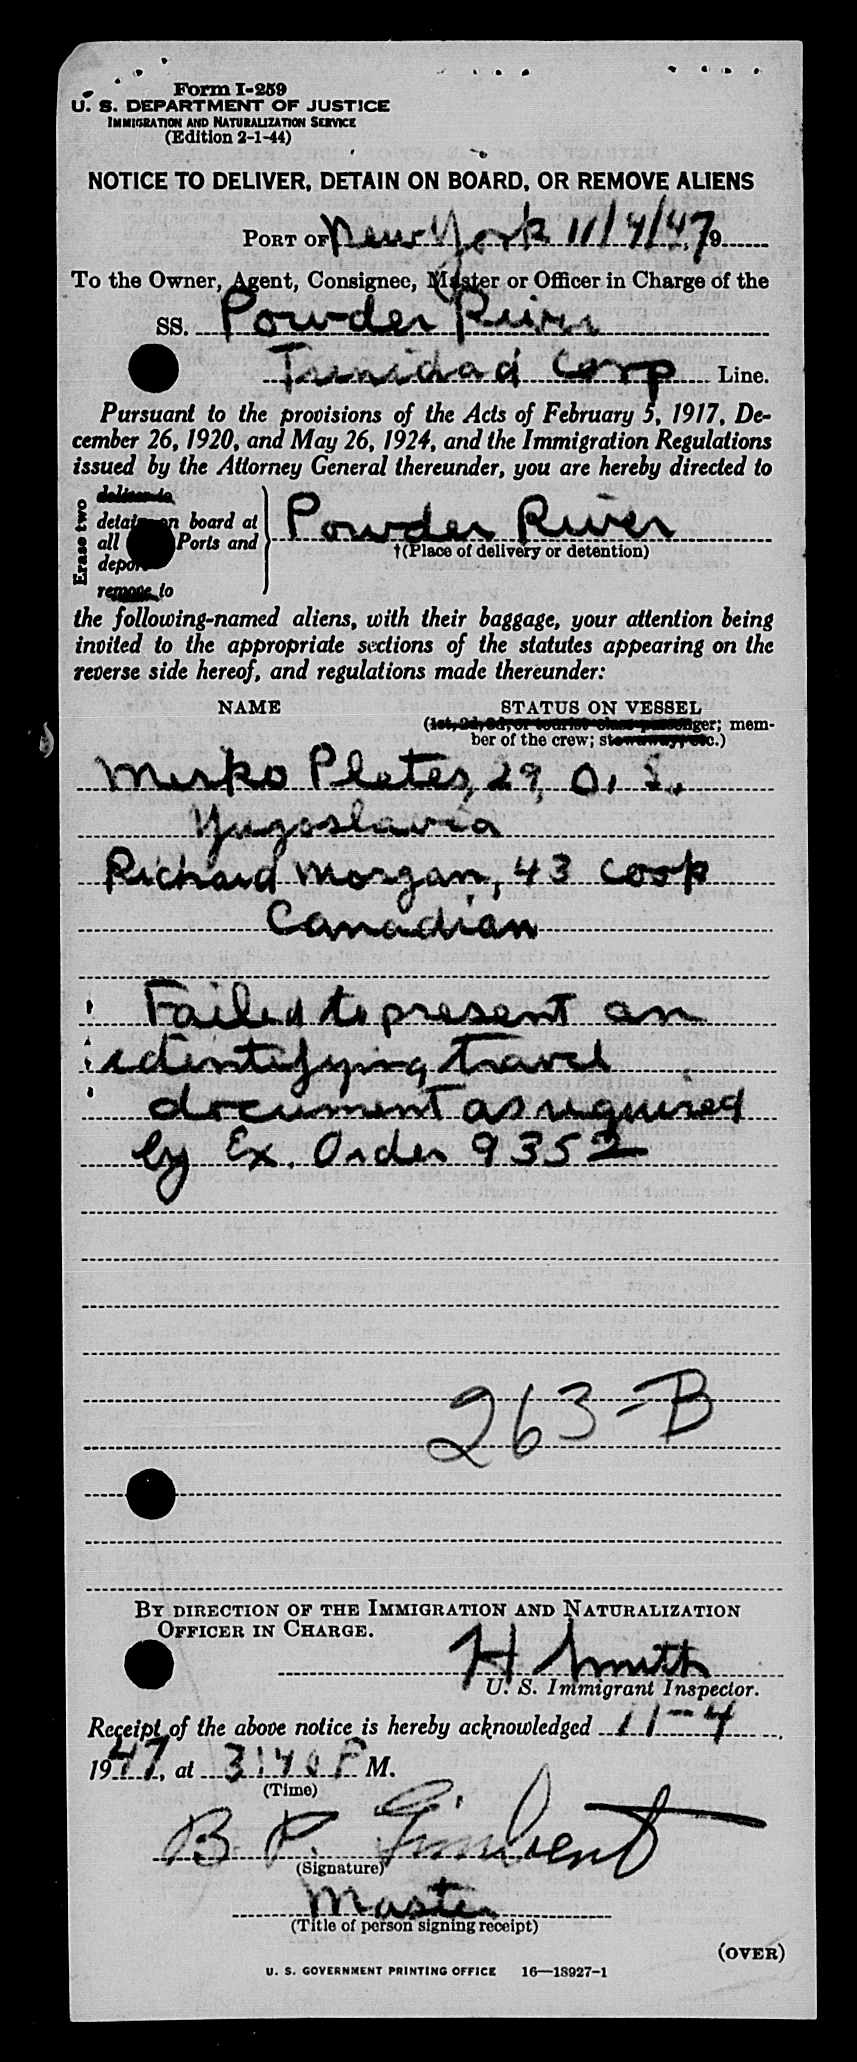 Form I-259
U. S. DEPARTMENT OF JUSTICE
IMMIGRATION AND NATURALIZATION SERVICE
(Edition 2-1-44)
NOTICE TO DELIVER, DETAIN ON BOARD, OR REMOVE ALIENS
PORT OF New York 11/4/47 19
To the Owner, Agent, Consignee, Master or Officer in Charge of the
SS. Powder River
Trinidad Corp Line.
Pursuant to the provisions of the Acts of February 5, 1917, De-
cember 26, 1920, and May 26, 1924, and the Immigration Regulations
issued by the Attorney General thereunder, you are hereby directed to
Erase two
deliver to
detain on board at
all Ports and
deport
remove to
Powder River
†(Place of delivery or detention)
the following-named aliens, with their baggage, your attention being
invited to the appropriate sections of the statutes appearing on the
reverse side hereof, and regulations made thereunder:
NAME STATUS ON VESSEL
(1st, 2d, 3d, or tourist class passenger; mem-
ber of the crew; stowaway, etc.)
Mirko Pletes, 29, O. S.,
Yugoslavia
Richard Morgan, 43 Cook
Canadian
Failed to present an
identifying travel
document as required
by Ex. Order 9352
263-B
BY DIRECTION OF THE IMMIGRATION AND NATURALIZATION
OFFICER IN CHARGE.
H Smith
U. S. Immigrant Inspector.
Receipt of the above notice is hereby acknowledged 11-4,
1947, at 3:40 P M.
(Time)
B P
(Signature)
Master
(Title of person signing receipt)
(OVER)
U. S. GOVERNMENT PRINTING OFFICE 16—18927-1